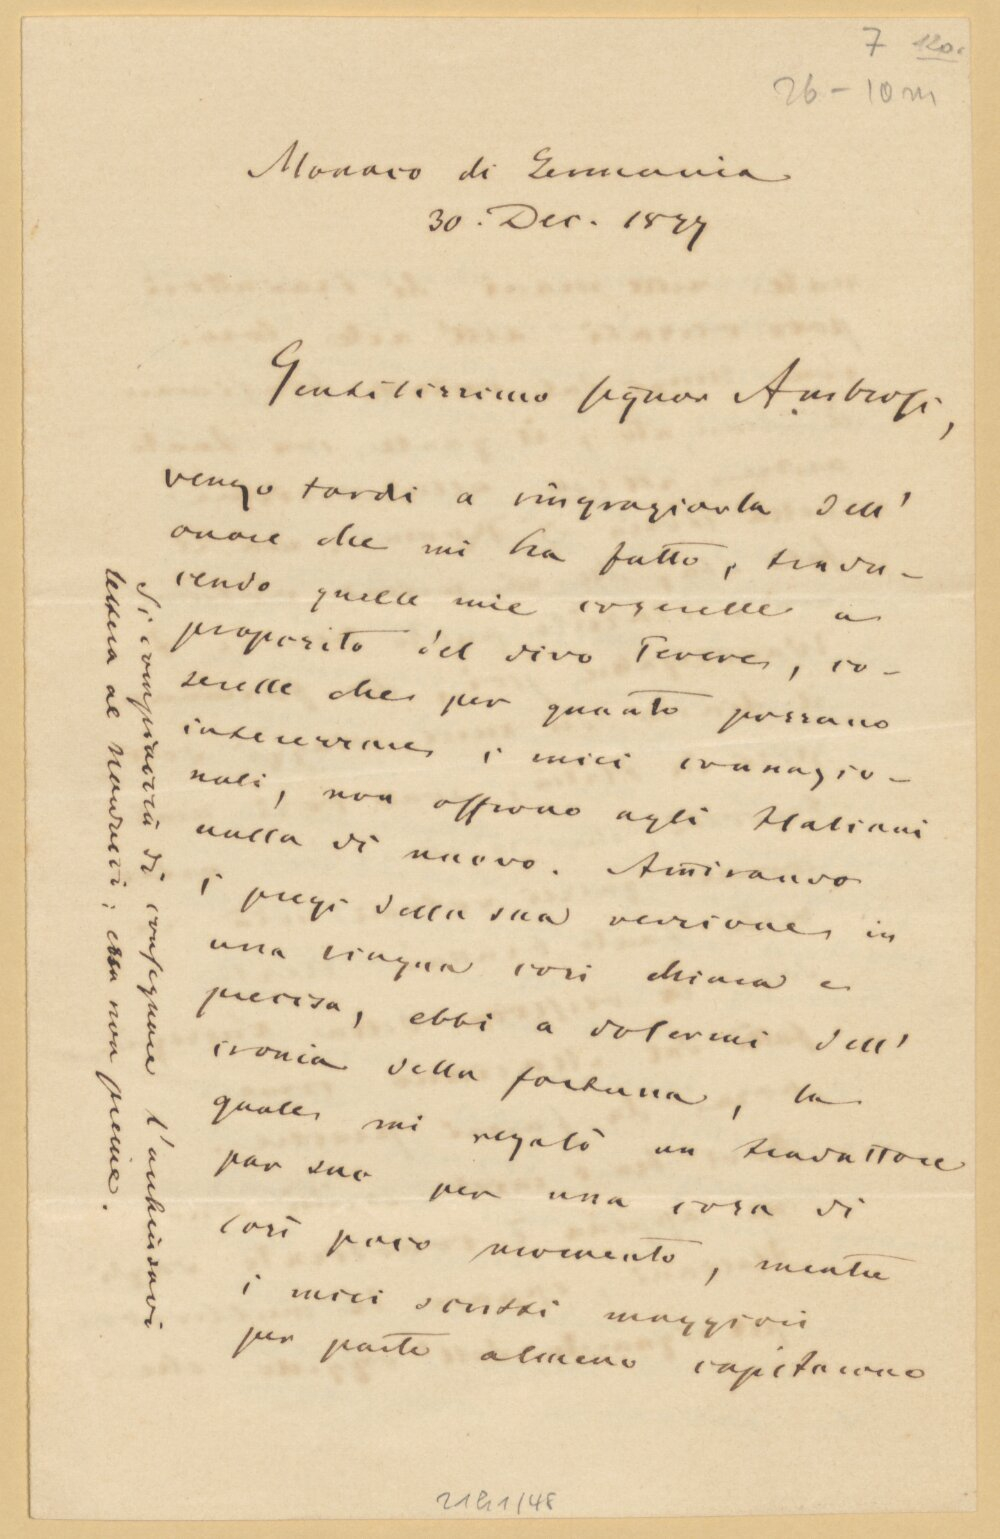 7 120.
26 – 10 m
Monaco di Germania
30. Dec. 1877
Gentilissimo signor Ambrosi,
vengo tardi a ringraziarla dell'
onore che mi ha fatto, tradu-
cendo quelle mie coserelle a
proposito del divo Tevere, co-
serelle che per quanto possano
interessare i miei connazio-
nali, non offrono agli Italiani
nulla di nuovo. Am̄irando
i pregi della sua versione in
una lingua così chiara e
precisa, ebbi a dolermi dell'
ironia della fortuna, la
quale mi regalò un traduttore
par suo per una cosa di
così poco momento, mentre
i miei scritti maggiori
per parte almeno capitarono
Si compiacerà di consegnare l'acchiusavi
lettera al Narducci; essa non preme.
2181/48